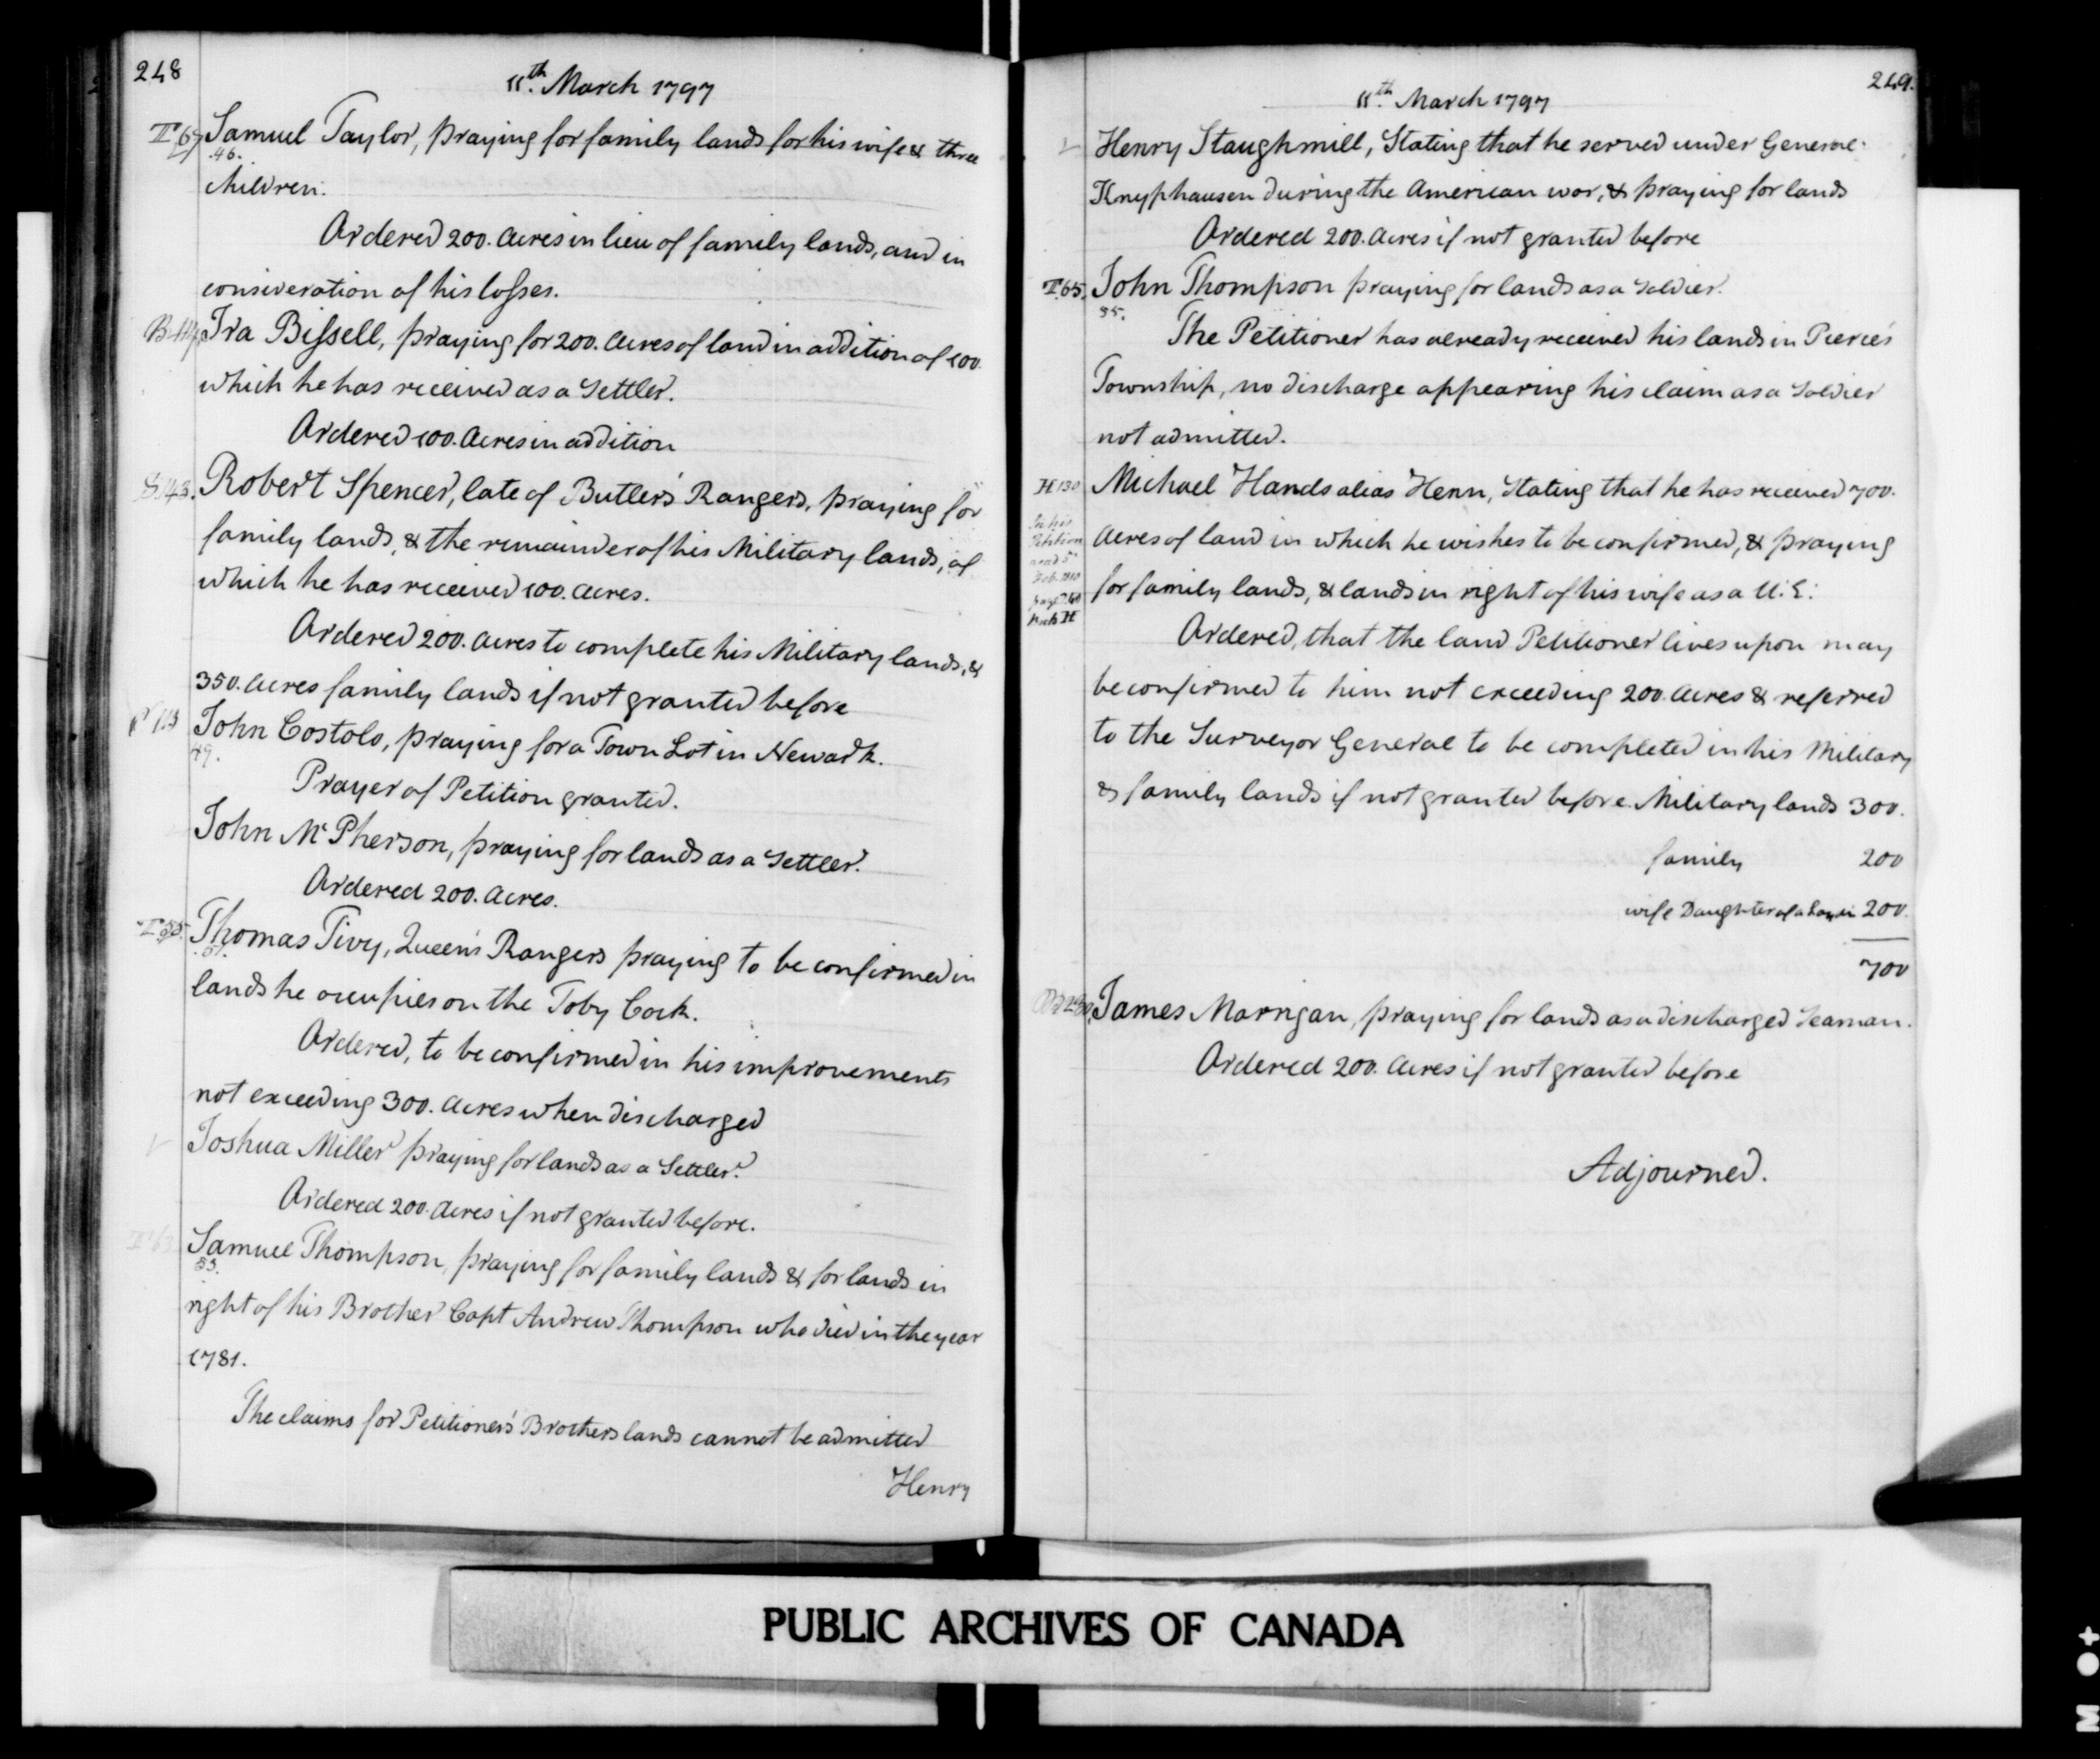 248
11th March 1797
T 67 Samuel Taylor, praying for family lands for his wife & three
46.
children.
Ordered 200. Acres in lieu of family lands, and in
consideration of his losses.
Ira Bissell, praying for 200. Acres of land in addition of 100.
which he has received as a Settler.
Ordered 100. Acres in addition
S 143. Robert Spencer, late of Butler's Rangers, praying for
family lands, & the remainder of his Military lands, of
which he has received 100. Acres.
Ordered 200. Acres to complete his Military lands, &
350. Acres family lands if not granted before
John Costolo, praying for a Town Lot in Newark.
49.
Prayer of Petition granted.
John McPherson, praying for lands as a Settler.
Ordered 200. Acres.
Thomas Tivy, Queen's Rangers praying to be confirmed in
51.
lands he occupies on the Toby Cock.
Ordered, to be confirmed in his improvements
not exceeding 300. Acres when discharged
Joshua Miller praying for lands as a Settler.
Ordered 200. Acres if not granted before.
Samuel Thompson, praying for family lands & for lands in
53.
right of his Brother Capt Andrew Thompson who died in the year
1781.
The claims for Petitioner's Brothers lands cannot be admitted
Henry
249.
11th March 1797
Henry Staughmill, Stating that he served under General
Knyphausen during the American war, & praying for lands
Ordered 200. Acres if not granted before
T 65. John Thompson praying for lands as a Soldier.
55.
The Petitioner has already received his lands in Pierce's
Township, no discharge appearing his claim as a Soldier
not admitted.
H 130 Michael Hands alias Henn, Stating that he has received 700.
In his
Petition
read 5th
Feb. 1810
Acres of land in which he wishes to be confirmed, & praying
for family lands, & lands in right of his wife as a U.E.
Ordered, that the land Petitioner lives upon may
be confirmed to him not exceeding 200. Acres & referred
to the Surveyor General to be completed in his Military
& family lands if not granted before. Military lands 300.
family 200
wife Daughter of a 200.
700
James Marrigan, praying for lands as a discharged Seaman.
Ordered 200. Acres if not granted before
Adjourned.
PUBLIC ARCHIVES OF CANADA